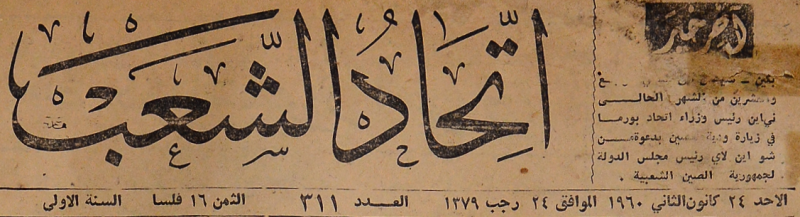 اتحاد الشعب
لآخر خبر
بكين ـ
والعشرين من الشهر الحالى
ني اين رئيس وزراء اتحاد بورما
في زيارة ودية للصين بدعوة من
شو اين لاي رئيس مجلس الدولة
لجمهورية الصين الشعبية .
الاحد ٢٤ كانون الثاني ١٩٦٠ الموافق ٢٤ رجب ١٣٧٩ العدد ٣١١ الثمن ١٦ فلسا السنة الاولى